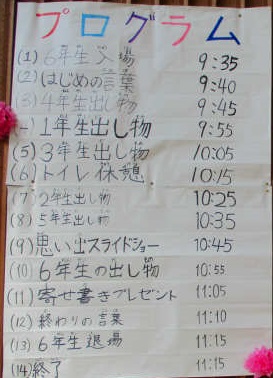 プログラム
(1) 6年生入場 9:35
(2) はじめの言葉 9:40
(3) 4年生出し物 9:45
1年生出し物 9:55
(5) 3年生出し物 10:05
(6) トイレ休憩 10:15
(7) 2年生出し物 10:25
(8) 5年生出し物 10:35
(9) 思い出スライドショー 10:45
(10) 6年生の出し物 10:55
(11) 寄せ書きプレゼント 11:05
(12) 終わりの言葉 11:10
(13) 6年生退場 11:15
(14) 終了 11:15